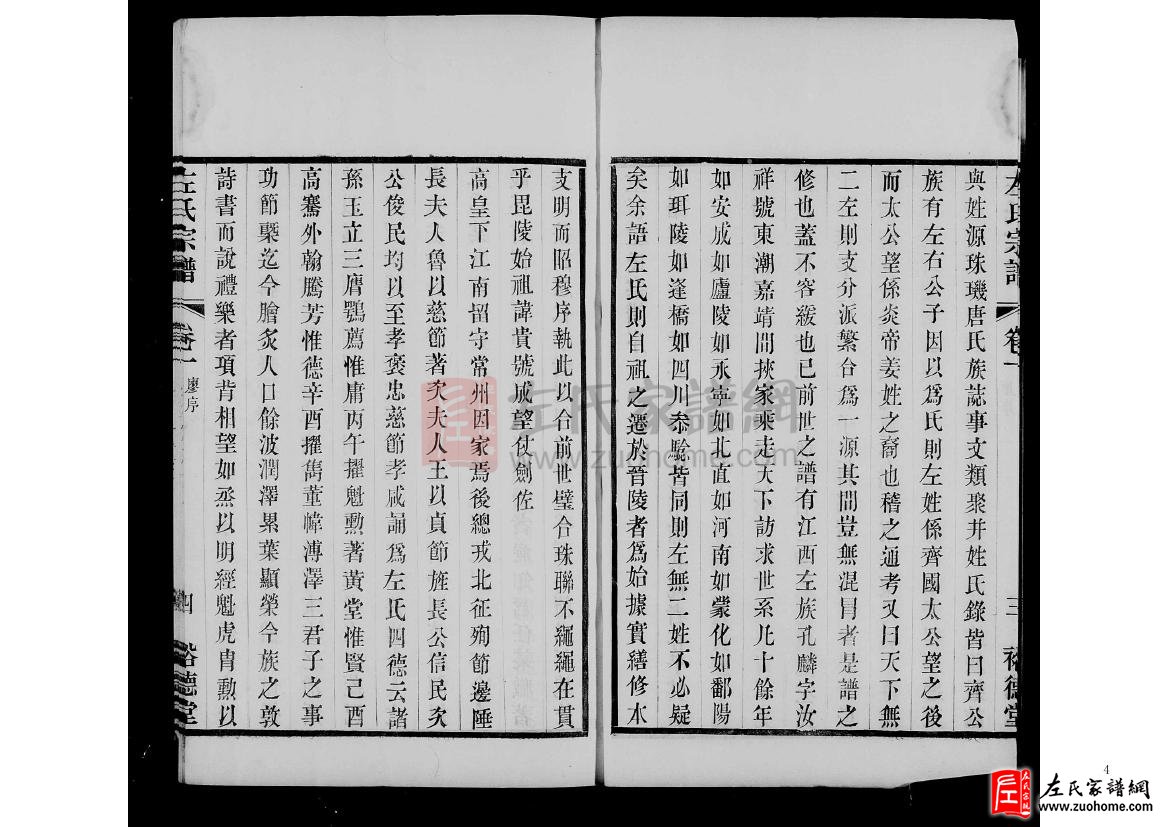 左氏宗譜
卷一
三
裕德堂
與姓源珠璣唐氏族誌事文類聚幷姓氏錄皆曰齊公
族有左右公子因以爲氏則左姓係齊國太公望之後
而太公望係炎帝姜姓之裔也稽之通考又曰天下無
二左則支分派繁合爲一源其間豈無混冒者是譜之
修也蓋不容緩也已前世之譜有江西左族孔麟字汝
祥號東潮嘉靖間挾家乘走天下訪求世系凡十餘年
如安成如廬陵如永寧如北直如河南如蒙化如鄱陽
如珥陵如逢橋如四川叅騐皆同則左無二姓不必疑
矣余語左氏則自祖之遷於晉陵者爲始據實繕修水
支明而昭穆序執此以合前世璧合珠聯不繩繩在貫
乎毘陵始祖諱貴號成望仗劍佐
高皇下江南留守常州因家焉後總戎北征殉節邊陲
長夫人魯以慈節著次夫人王以貞節旌長公信民次
公俊民均以至孝褒忠慈節孝咸誦爲左氏四德云諸
孫玉立三膺鶚薦惟庸丙午擢魁勲著黃堂惟賢己酉
高騫外翰騰芳惟德辛酉擢雋董幃溥澤三君子之事
功節槩迄今膾炙人口餘波潤澤累葉顯榮今族之敦
詩書而說禮樂者項背相望如烝以明經魁虎胄勲以
左氏宗譜
卷一
廖序
四
裕德堂
左氏家譜網
www.zuohome.com
4
左氏家譜網
www.zuohome.com